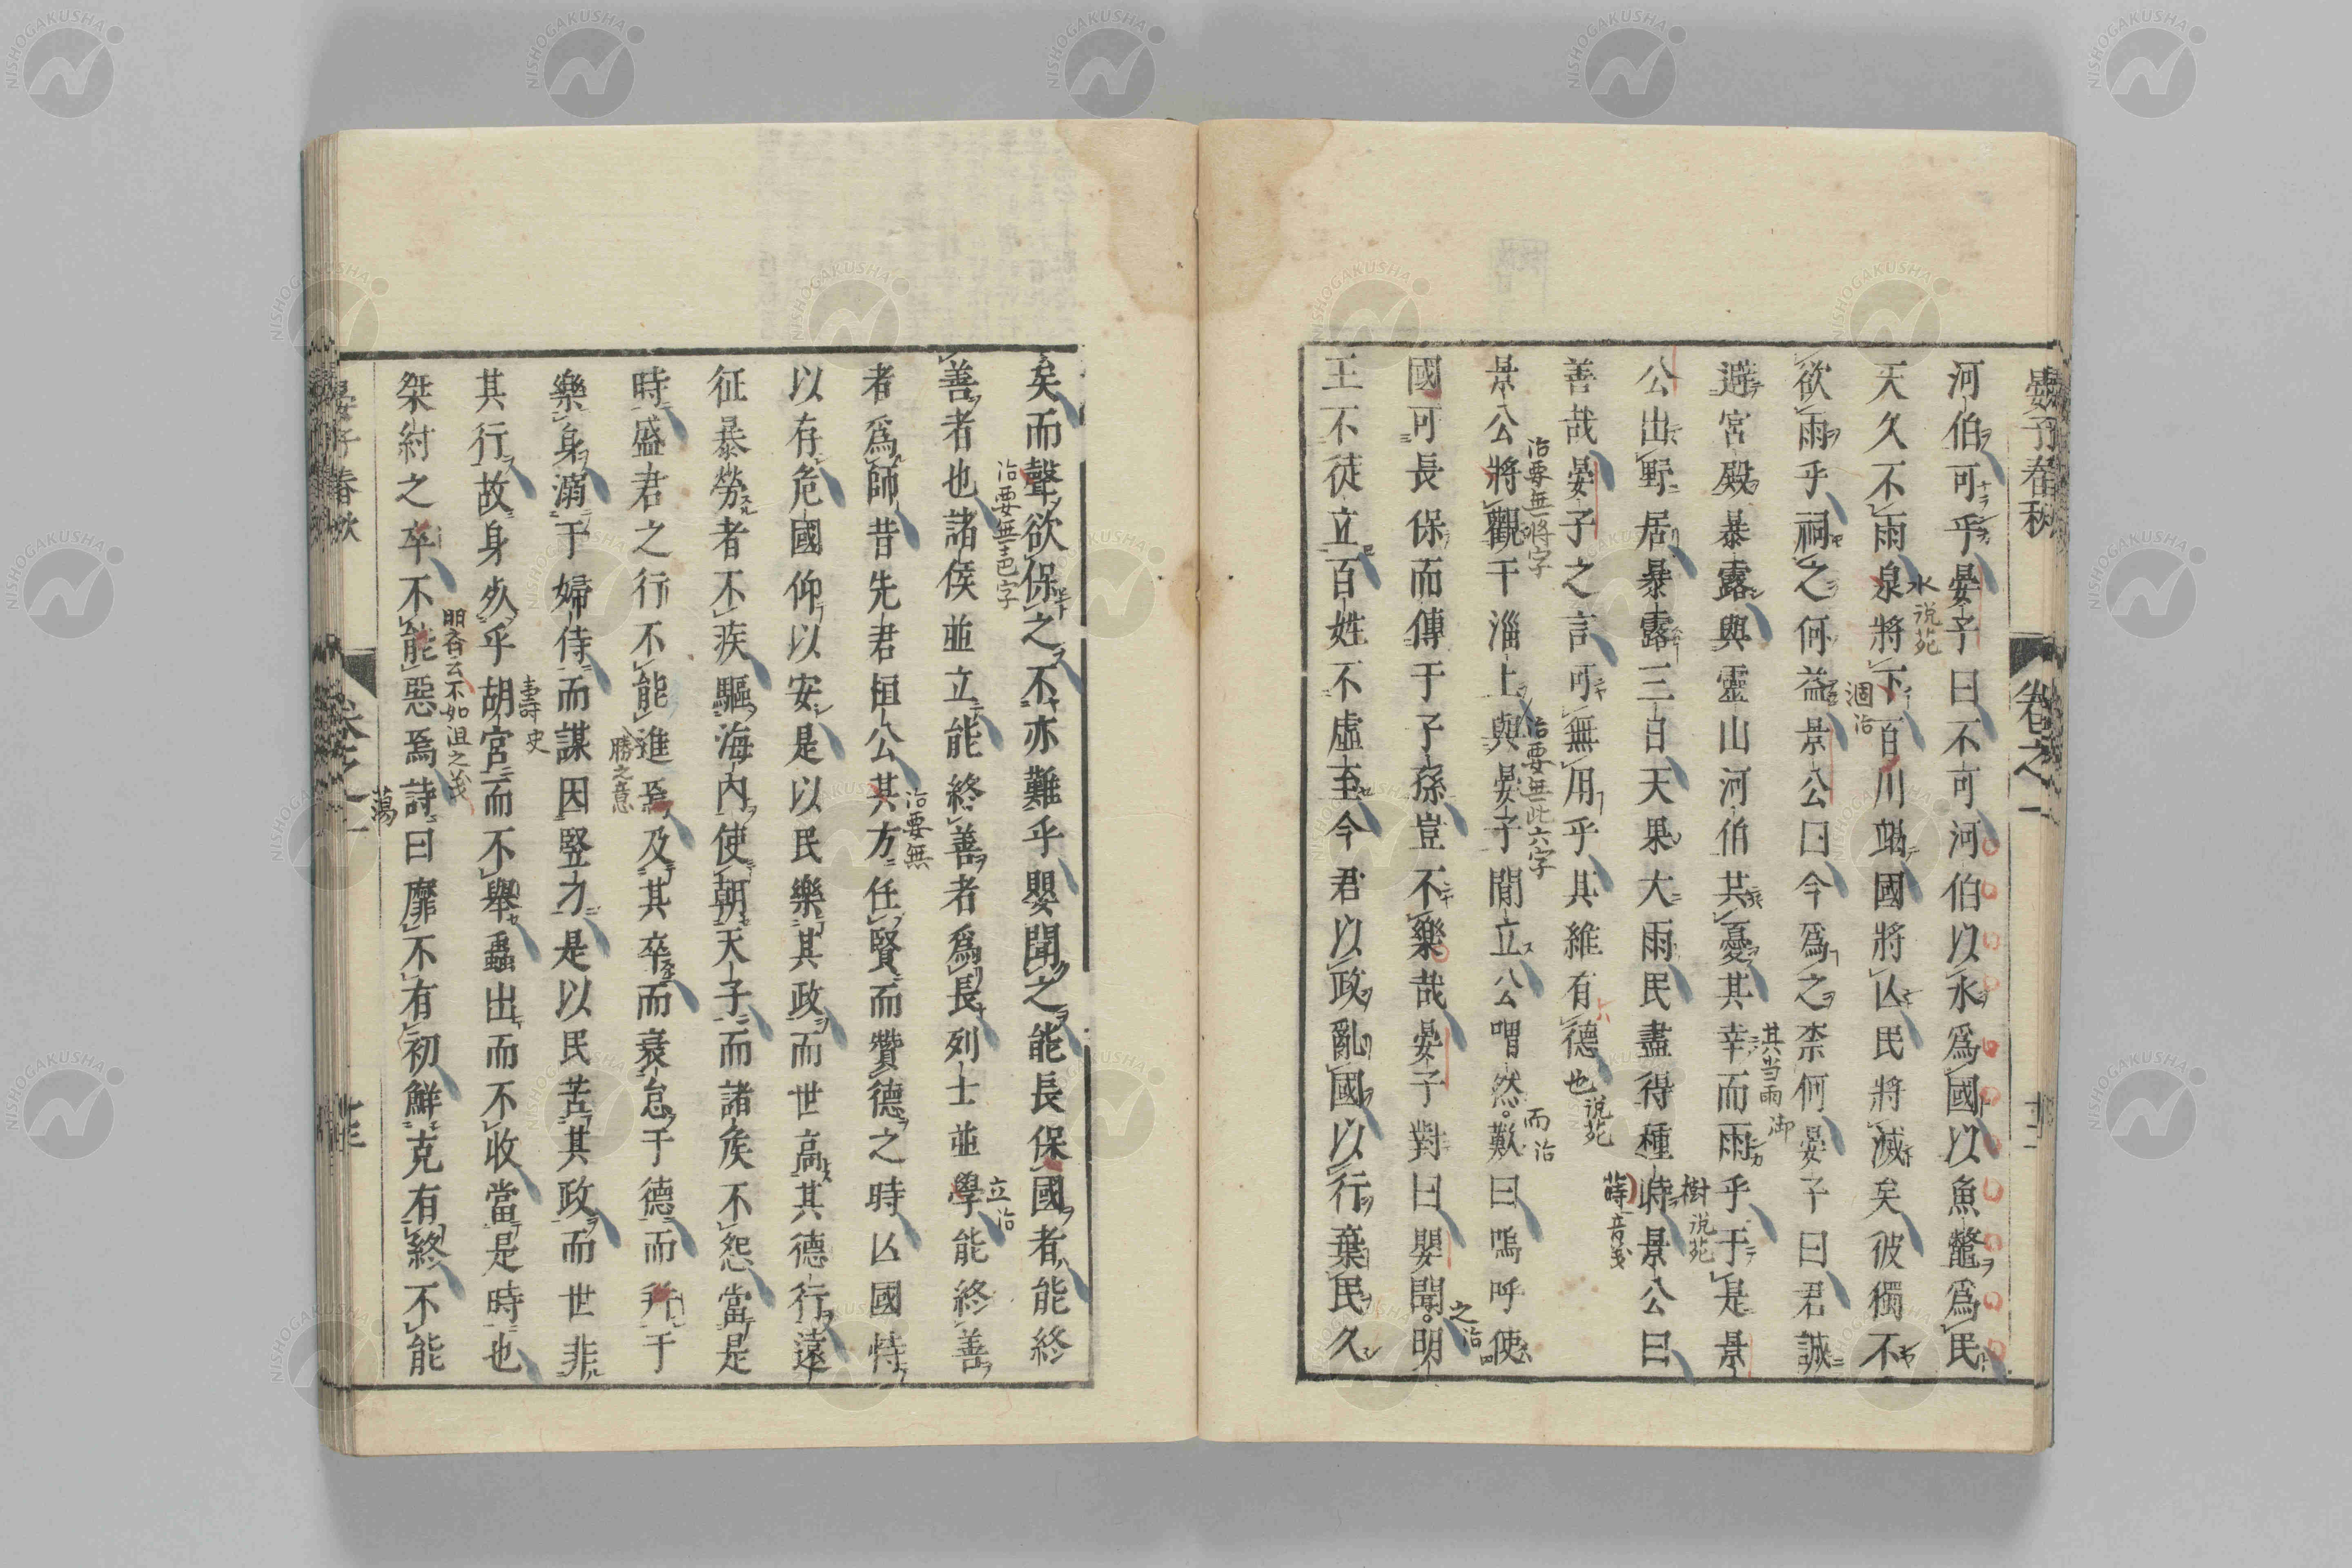 晏子春秋 卷之一
河伯可乎晏子曰不可河伯以水爲國以魚鼈爲民
天久不雨泉將下百川竭國將亾民將滅矣彼獨不
水 說苑
欲雨乎祠之何益景公曰今爲之柰何晏子曰君誠
涸治
避宮殿暴露與靈山河伯共憂其幸而雨乎于是景
其当雨 御
公出野居暴露三日天果大雨民盡得種時景公曰
樹 說苑
善哉晏子之言可無用乎其維有德也
說苑
蒔 音義
景公將觀于淄上與晏子閒立公喟然歎曰嗚呼使
治要無將字
治要無此六字
而治
國可長保而傳于子孫豈不樂哉晏子對曰嬰聞明
之治
王不徒立百姓不虛至今君以政亂國以行棄民久
矣而聲欲保之不亦難乎嬰聞之能長保國者能終
善者也諸侯並立能終善者爲長列士並學能終善
治要無
立治
者爲師昔先君桓公其方任賢而贊德之時亾國恃
治要無
以存危國仰以安是以民樂其政而世高其德行遠
征暴勞者不疾驅海內使朝天子而諸矦不怨當是
時盛君之行不能進焉及其卒而衰怠于德而并于
勝之意
樂身溺于婦侍而謀因豎刁是以民苦其政而世非
其行故身死乎胡宮而不舉蟲出而不收當是時也
壽史
桀紂之卒不能惡焉詩曰靡不有初鮮克有終不能
蕩
晏子春秋